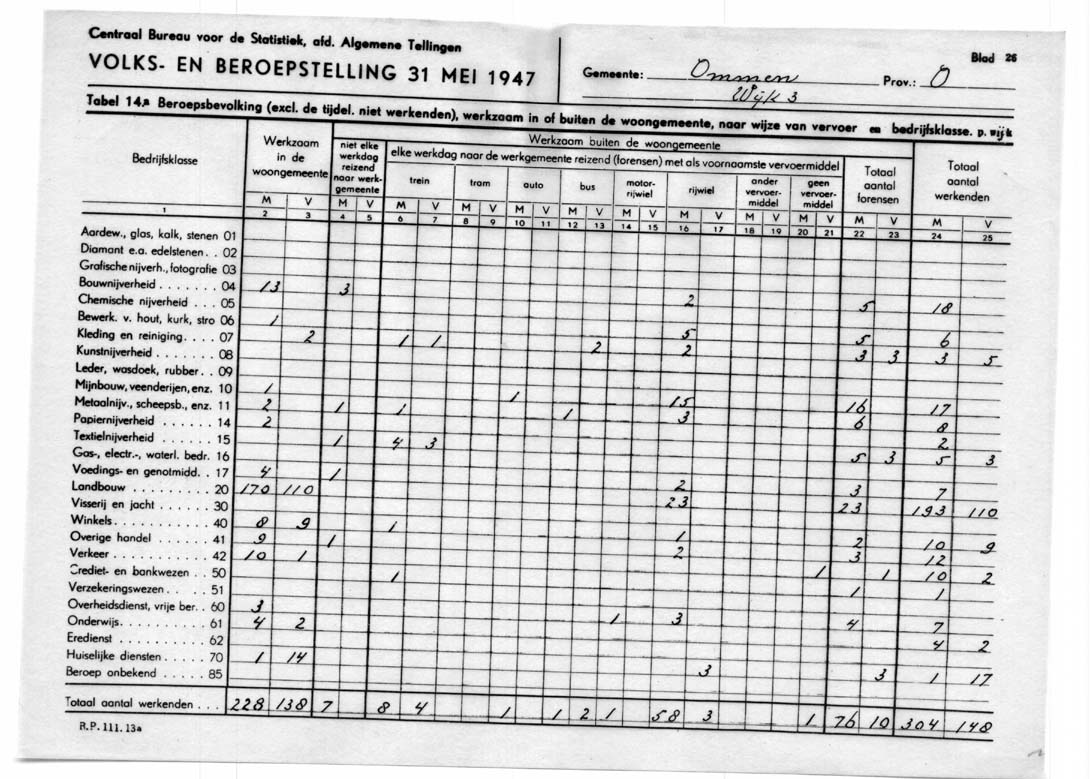 Centraal Bureau voor de Statistiek, afd. Algemene Tellingen
VOLKS- EN BEROEPSTELLING 31 MEI 1947
Gemeente: Ommen Prov.: O
Wijk 3
Blad 26
Tabel 14.a Beroepsbevolking (excl. de tijdel. niet werkenden), werkzaam in of buiten de woongemeente, naar wijze van vervoer en bedrijfsklasse. p. wijk
Bedrijfsklasse
Werkzaam in de woongemeente
Werkzaam buiten de woongemeente
niet elke werkdag reizend naar werkgemeente
elke werkdag naar de werkgemeente reizend (forensen) met als voornaamste vervoermiddel
trein tram auto bus motor-rijwiel rijwiel ander vervoer-middel geen vervoer-middel
Totaal aantal forensen
Totaal aantal werkenden
M V M V M V M V M V M V M V M V M V M V M V M V
1 2 3 4 5 6 7 8 9 10 11 12 13 14 15 16 17 18 19 20 21 22 23 24 25
Aardew., glas, kalk, stenen 01
Diamant e.a. edelstenen. . 02
Grafische nijverh., fotografie 03
Bouwnijverheid . . . . . . . 04 13 3 2 5 18
Chemische nijverheid . . . 05
Bewerk. v. hout, kurk, stro 06 1 5 5 6
Kleding en reiniging. . . . 07 2 1 1 2 2 3 3 3 5
Kunstnijverheid . . . . . . . 08
Leder, wasdoek, rubber. . 09
Mijnbouw, veenderijen, enz. 10 1 1 15 16 17
Metaalnijv., scheepsb., enz. 11 2 1 1 1 3 6 8
Papiernijverheid . . . . . . 14 2 2
Textielnijverheid . . . . . . 15 1 4 3 5 3 5 3
Gas-, electr.-, waterl. bedr. 16
Voedings- en genotmidd. . 17 4 1 2 3 7
Landbouw . . . . . . . . . . 20 170 110 23 23 193 110
Visserij en jacht . . . . . . 30
Winkels . . . . . . . . . . . . 40 8 9 1 1 2 10 9
Overige handel . . . . . . . 41 9 1 2 3 12
Verkeer . . . . . . . . . . . . 42 10 1 1 1 10 2
Crediet- en bankwezen . . 50 1 1 1
Verzekeringswezen . . . . . 51
Overheidsdienst, vrije ber. . 60 3 1 3 4 7
Onderwijs. . . . . . . . . . . 61 4 2 4 2
Eredienst . . . . . . . . . . . 62
Huiselijke diensten . . . . . 70 1 14 3 3 1 17
Beroep onbekend . . . . . . 85
Totaal aantal werkenden . . . 228 138 7 8 4 1 1 2 1 58 3 1 76 10 304 148
R.P. 111. 13a